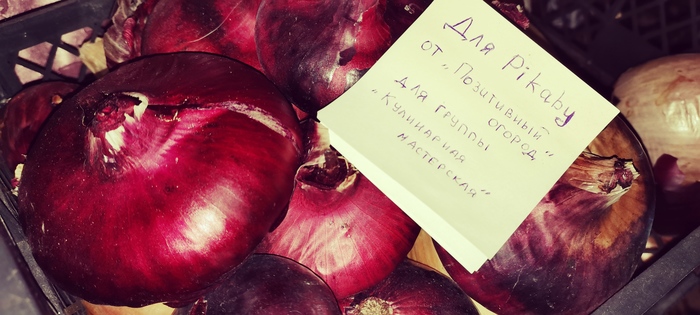 Для Pikaby
от „Позитивный
огород"
для группы
„Кулинарная
мастерская"